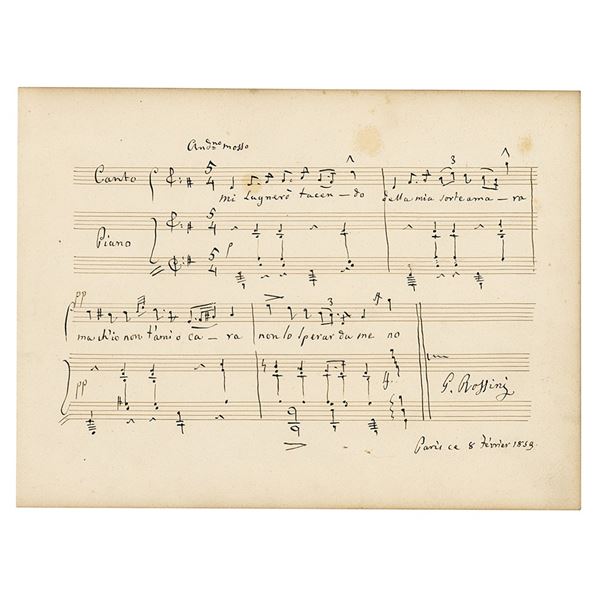 And.no mosso
Canto 5/4 3
mi lagnerò tacen - do della mia sorte ama - ra
Piano 5/4 p
5/4
pp 3
ma ch'io non t'ami o ca - ra non lo sperar da me no
pp
G. Rossini
Paris ce 8 Février 1859.